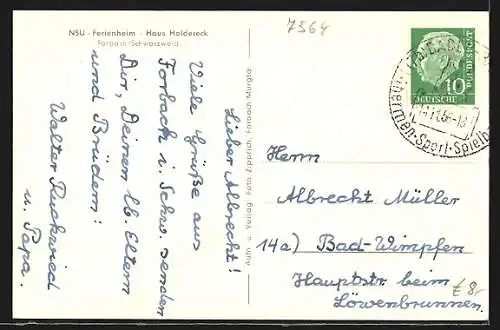 7564
NSU - Ferienheim - Haus Holdereck
Forbach (Schwarzwald)
Lieber Albrecht!
Viele Grüße aus
Forbach i. Schw. senden
Dir, Deinen lb Eltern
und Brüdern:
Walter Ruckwied
u. Papa.
Aufn. u. Verlag Foto-Zipprich, Forbach Murgtal
BUNDESPOST
10
DEUTSCHE
BADEN
Thermen-Sport-Spielb
Herrn
Albrecht Müller
14a) Bad-Wimpfen
Hauptstr. beim
Löwenbrunnen.